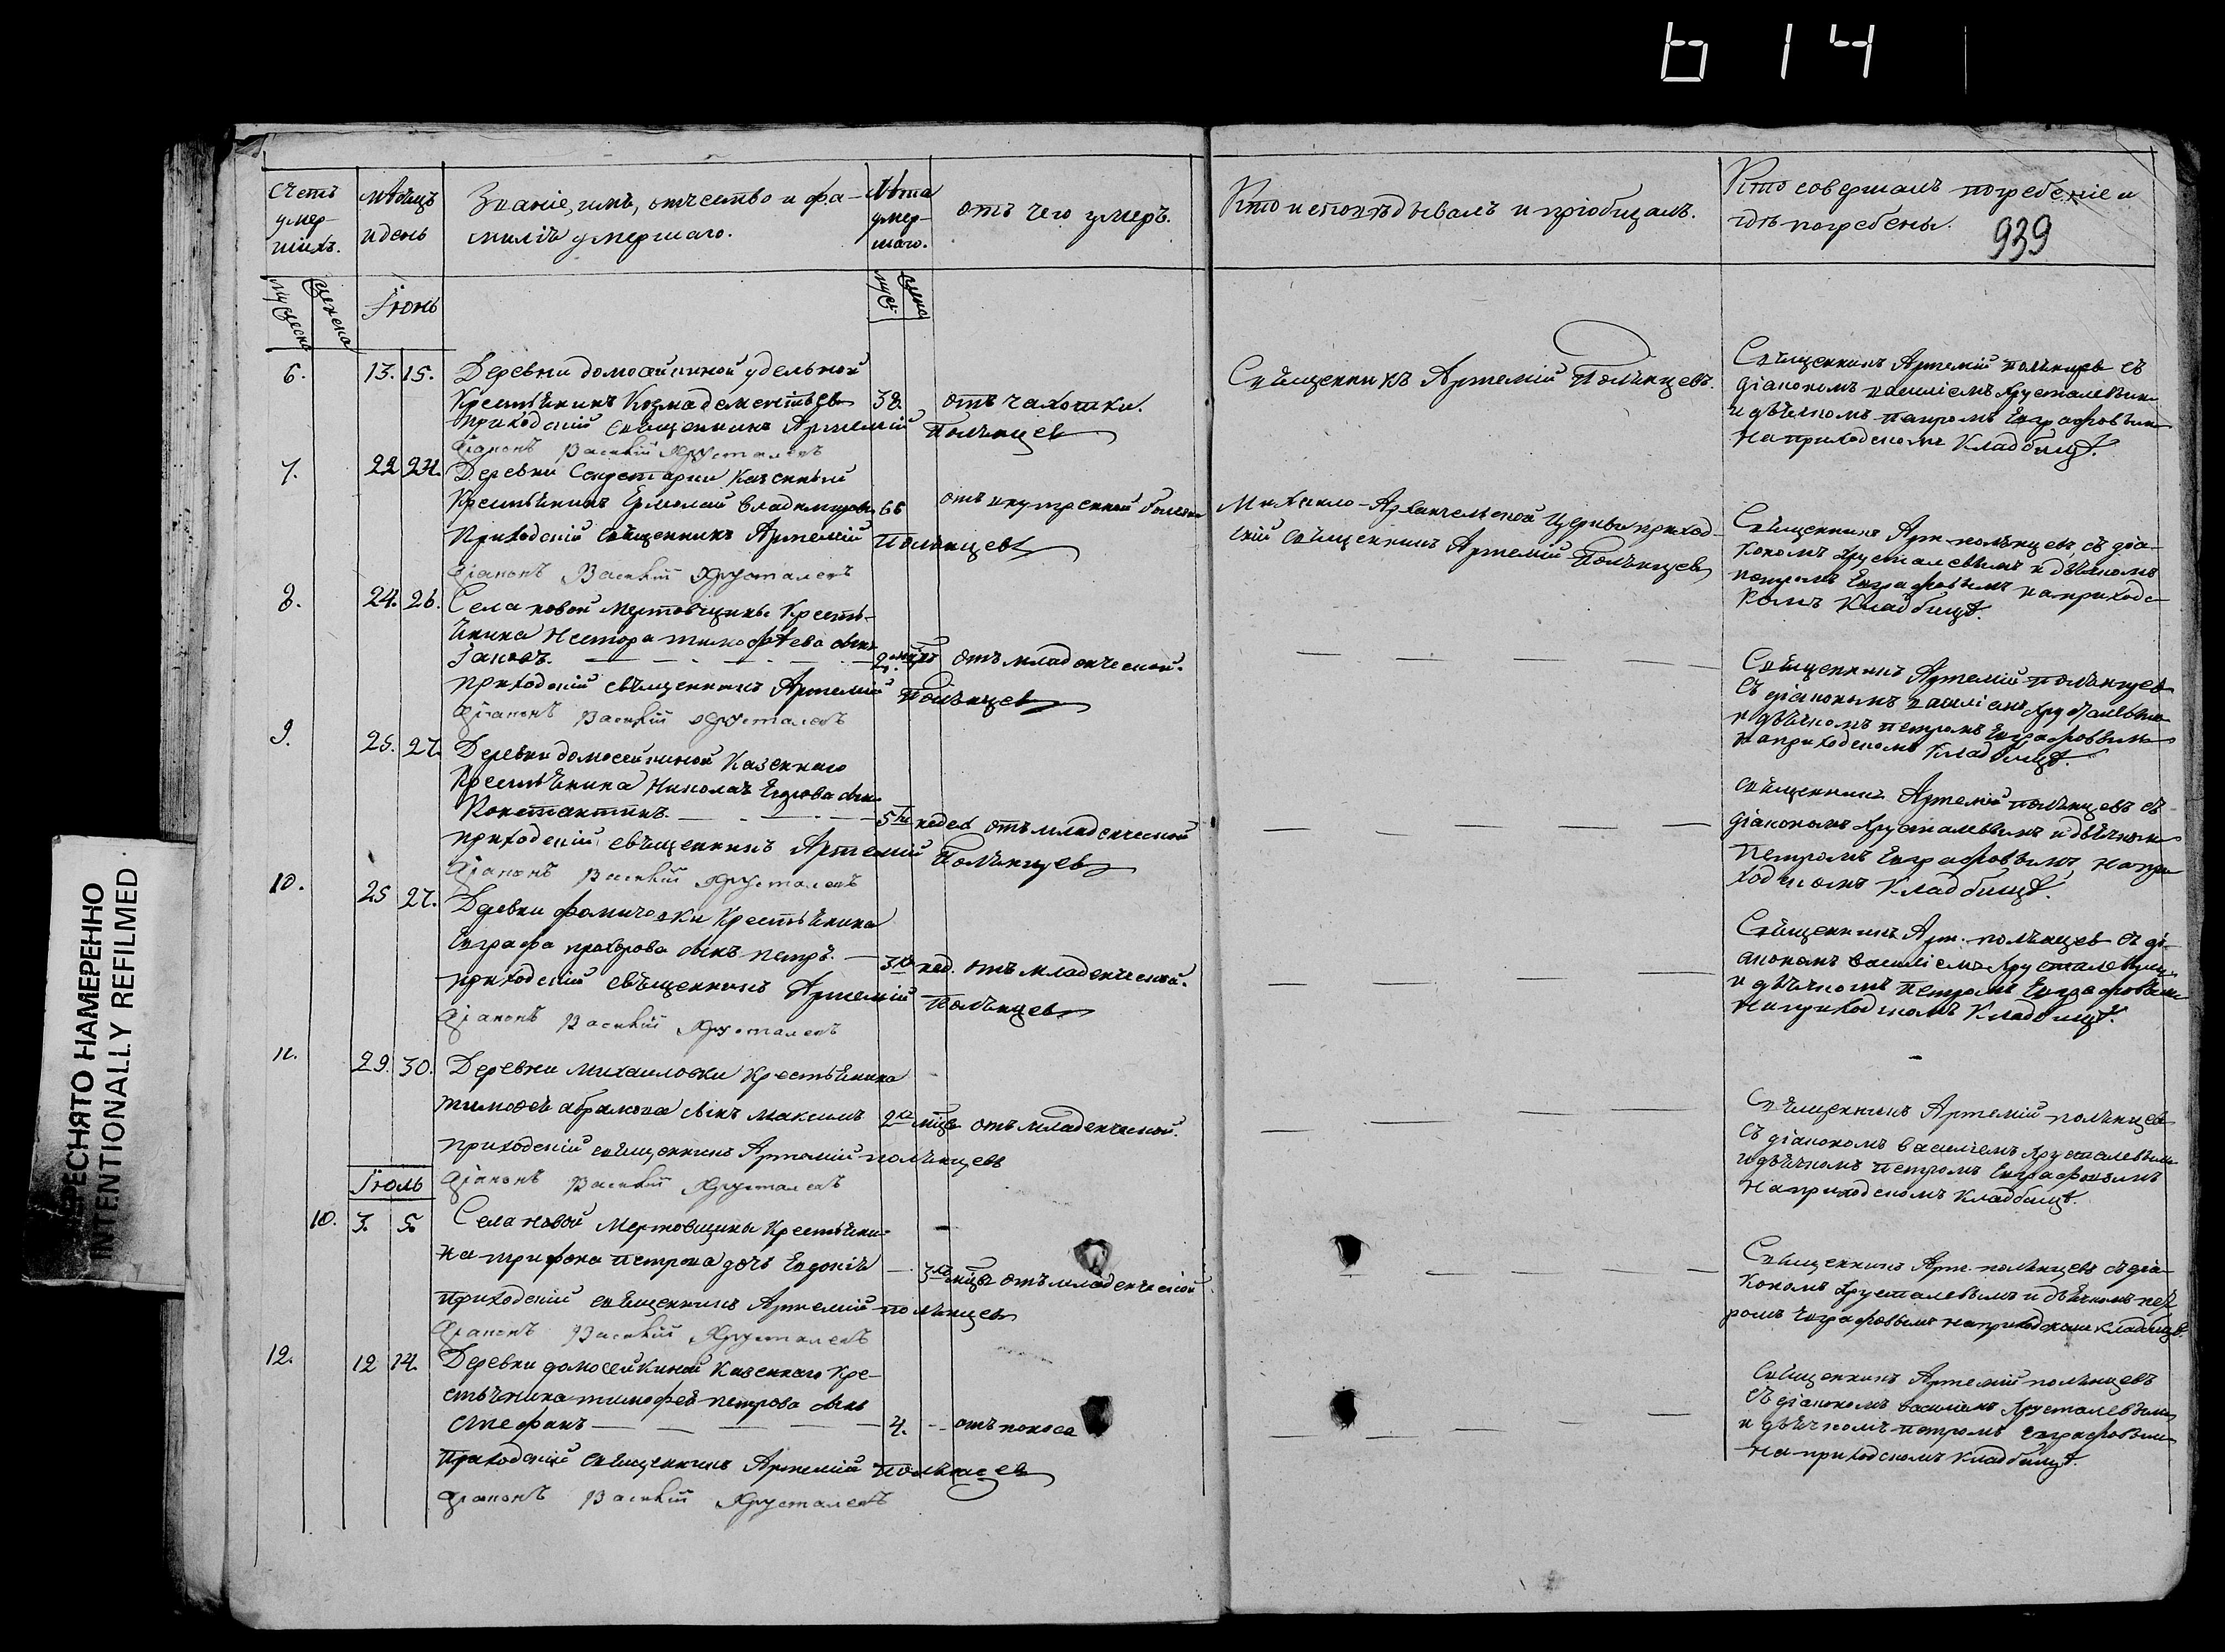 614
Счетъ умер-шихъ.
мѣсяцъ и день
Званіе, имя, отчество и фа-
милія умершаго.
Лѣта умер-шаго.
отъ чего умеръ.
Кто исповѣдывалъ и пріобщалъ.
Кто совершалъ погребеніе и
гдѣ погребены.
939
мужеска
женска
Іюнь
муж.
жен.
6. 13. 15. Деревни домосейкиной удельной
Крестьянинъ Козма дементьевъ 38. отъ чахотки.
приходскій священникъ Артемій Полянцев
діаконъ Василій Хрусталевъ
Священникъ Артемій Полянцевъ.
Священникъ Артемій полянцевъ съ
діакономъ василіемъ Хрусталевым
и дьячкомъ петромъ Евграфовым
на приходскомъ Кладбищѣ.
7. 22 24. Деревни Секретарки Казенный
Крестьянинъ Ермолай Владимиров 66 отъ внутренной болезни
Приходскій священникъ Артемій Полянцевъ
діаконъ Василій Хрусталевъ
Михаило-Архангельской Церкви приход-
скій священникъ Артемій Полянцев
Священникъ Арт. полянцевъ, съ діа-
кономъ Хрусталевымъ и дьячкомъ
петромъ Евграфовымъ на приходс-
комъ Кладбищѣ.
8. 24. 26. Села новой Мертовщины Кресть-
янина Нестора тимофѣева сынъ
Іаковъ. 2 мѣс отъ младенческой.
приходскій священникъ Артемій Полянцев
діаконъ Василій Хрусталевъ
Священникъ Артемій полянцев
съ діакономъ василіемъ Хрусталевым
и дьячкомъ петромъ Евграфовым
на приходскомъ Кладбищѣ.
9. 25. 27. Деревни домосейкиной Казеннаго
Крестьянина Николая Егорова сын
Константинъ. 5ти недел отъ младенческой
приходскій священникъ Артемій Полянцев
діаконъ Василій Хрусталевъ
священникъ Артемій полянцевъ съ
діакономъ Хрусталевымъ и дьячком
Петромъ Евграфовымъ, на при
ходскомъ Кладбищѣ.
10. 25 27. Деревни фомичевки Крестьянина
Евграфа прохорова сынъ петръ. 3хъ нед. отъ младенческой.
приходскій священникъ Артемій Полянцев
діаконъ Василій Хрусталевъ
Священникъ Арт. полянцев съ ді-
акономъ василіемъ Хрусталевым
и дьячкомъ петромъ Евграфовым
на приходскомъ Кладбищѣ.
11. 29. 30. Деревни михаиловки Крестьянина
тимофея абрамова сынъ максимъ 2хъ мѣсе отъ младенческой.
приходскій священникъ Артемій полянцевъ
діаконъ Василій Хрусталевъ
Священникъ Артемій полянцев
съ діакономъ василіемъ Хрусталевым
и дьячкомъ петромъ Евграфовымъ
на приходскомъ Кладбищѣ.
Іюль
10. 3. 5. Села новой Мертовщины Крестьяни-
на трифона петрова дочь Евдокія 3хъ мѣс отъ младенческой
приходскій священникъ Артемій полянцев
діаконъ Василій Хрусталевъ
Священникъ Арт. полянцевъ съ діа-
кономъ Хрусталевымъ и дьячкомъ пет
ромъ Евграфовымъ на приходском кладбищѣ.
12. 12 14. Деревни домосейкиной Казеннаго Кре-
стьянина тимофея петрова сынъ
Стефанъ 4. отъ поноса
Приходскій священникъ Артемій Полянцев
діаконъ Василій Хрусталевъ
Священникъ Артемій полянцевъ
съ діакономъ василіемъ Хрусталевым
и дьячкомъ петромъ Евграфовым
на приходскомъ Кладбищѣ.
ПЕРЕСНЯТО НАМЕРЕННО
INTENTIONALLY REFILMED